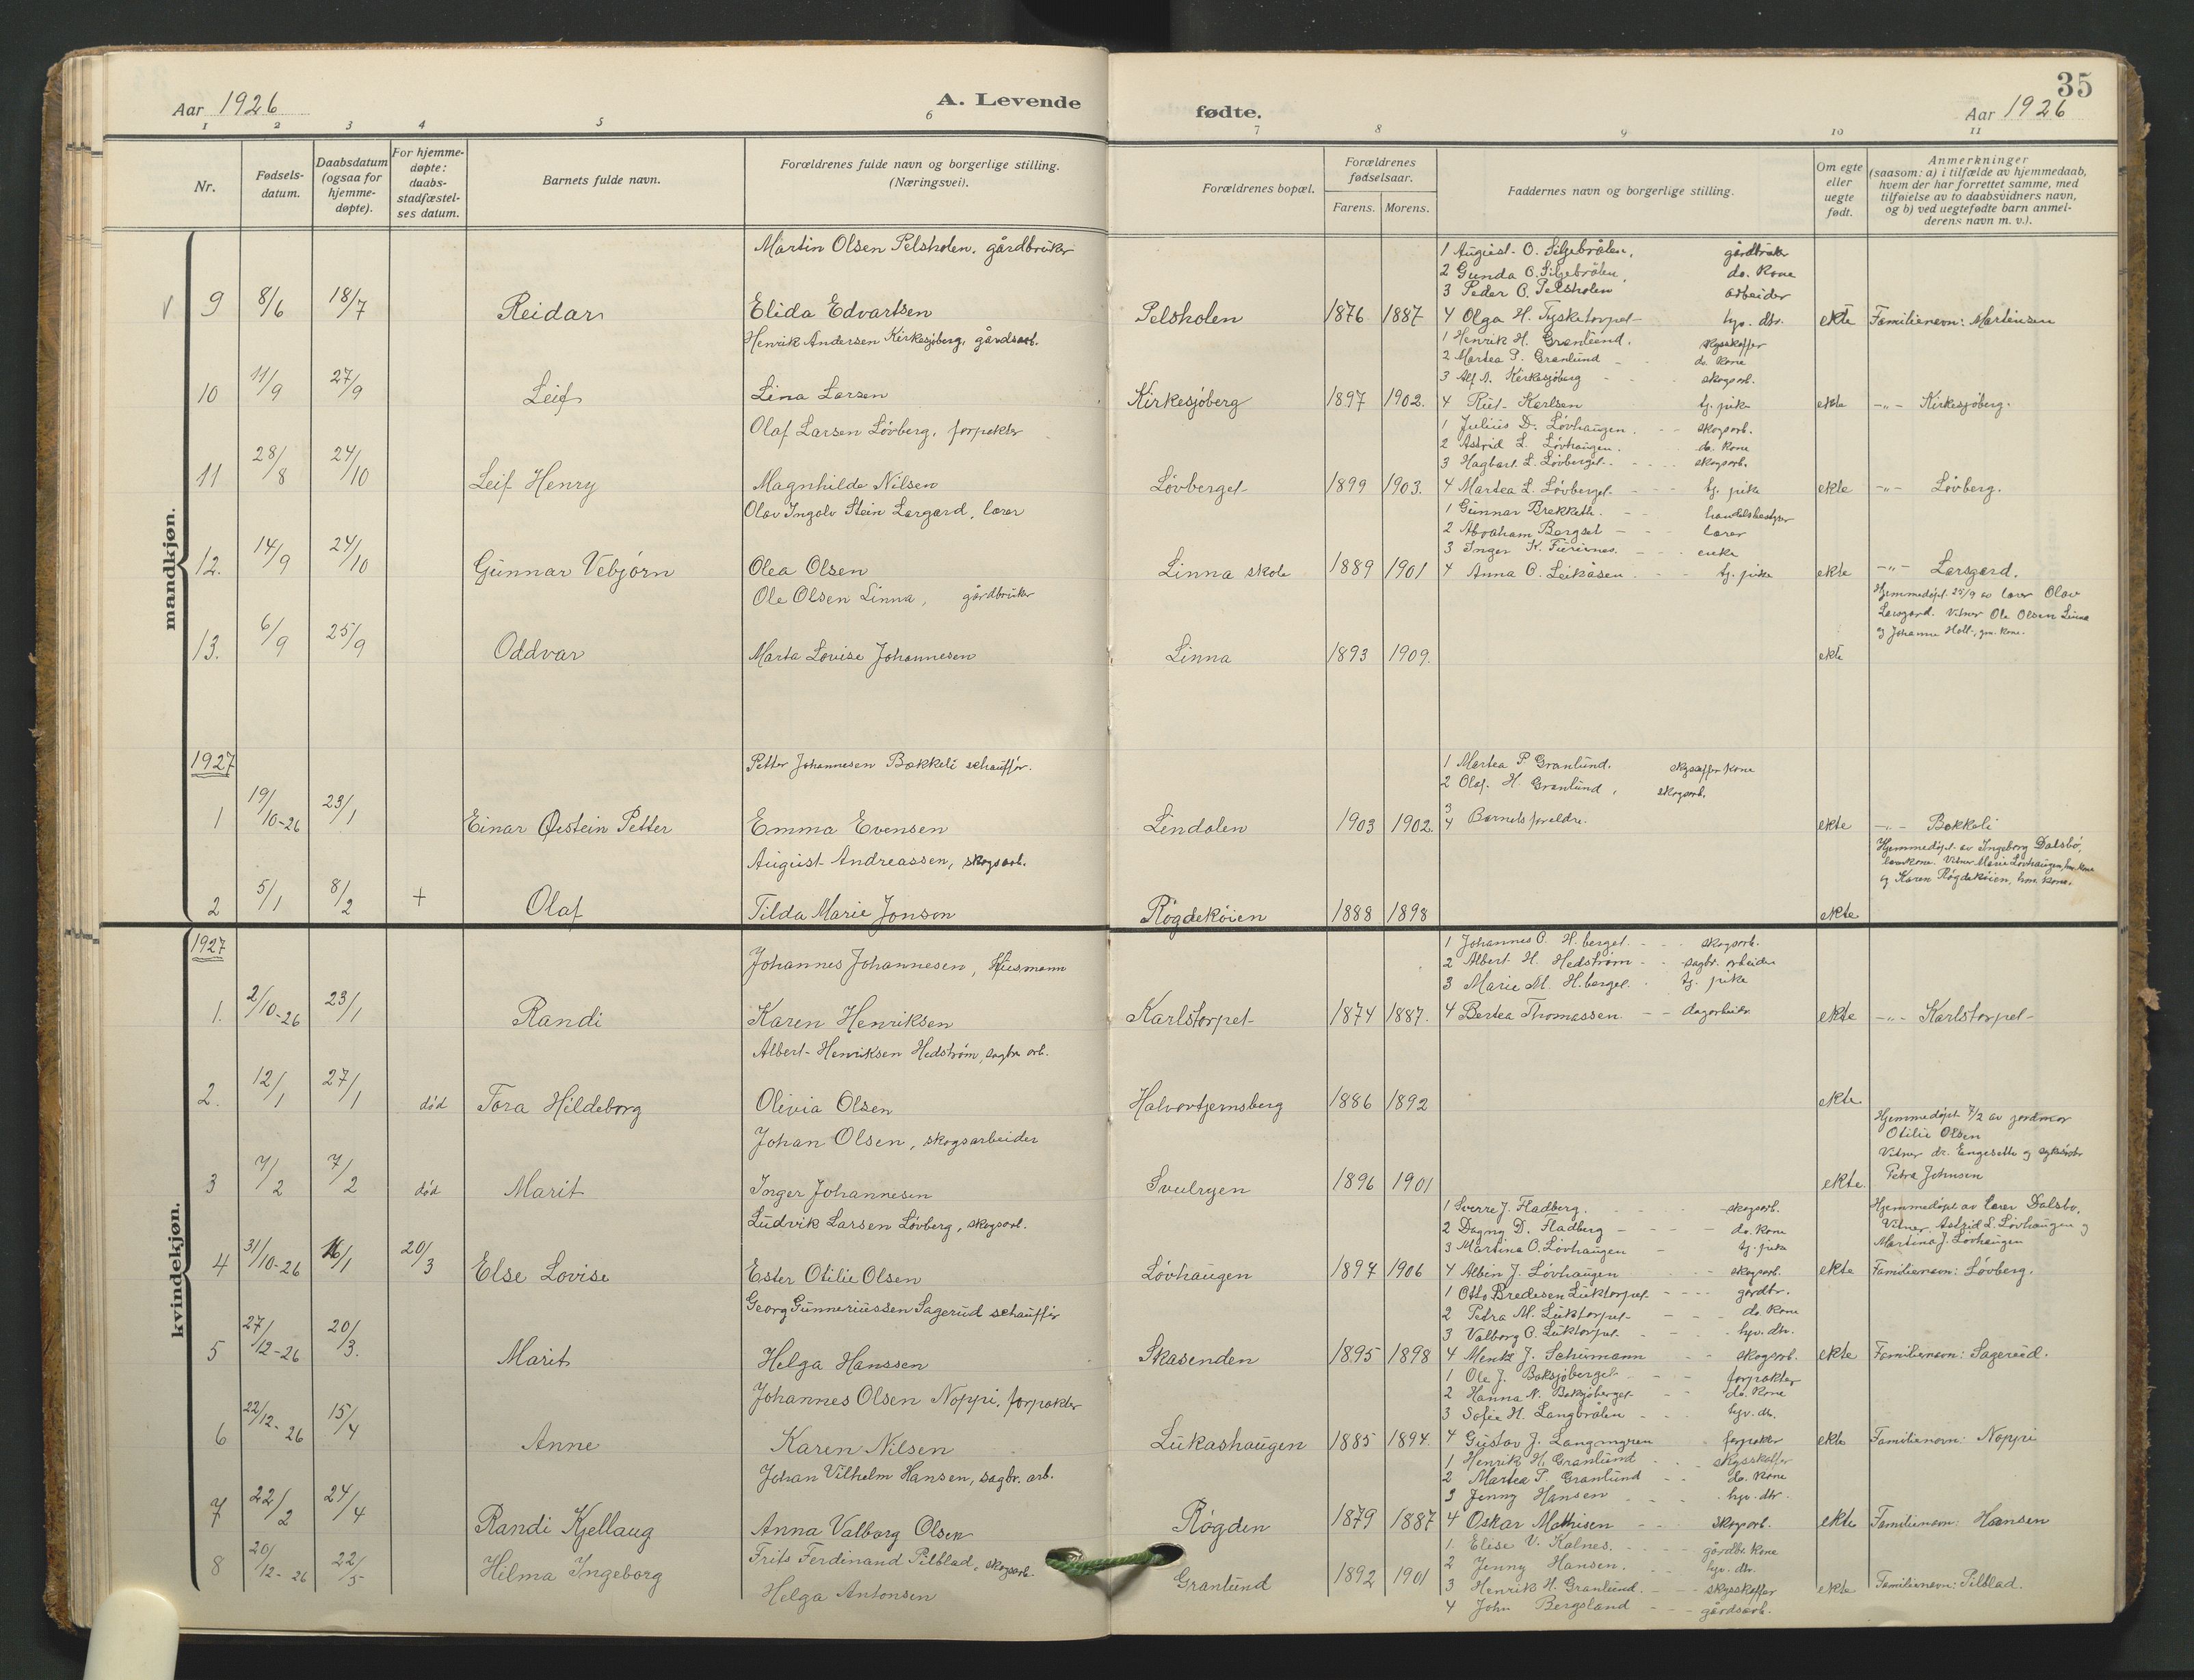 35
Aar 1926
A. Levende
fødte.
Aar 1926
1 2 3 4 5 6 7 8 9 10 11
Nr.
Fødsels-
datum.
Daabsdatum
(ogsaa for
hjemme-
døpte).
For hjemme-
døpte:
daabs-
stadfæstel-
ses datum.
Barnets fulde navn.
Forældrenes fulde navn og borgerlige stilling.
(Næringsvei).
Forældrenes bopæl.
Forældrenes
fødselsaar.
Farens. Morens.
Faddernes navn og borgerlige stilling.
Om egte
eller
uegte
født.
Anmerkninger
(saasom: a) i tilfælde av hjemmedaab,
hvem der har forrettet samme, med
tilføielse av to daabsvidners navn,
og b) ved uegtefødte barn anmel-
derens navn m. v.).
mandkjøn.
Martin Olsen Pelsholen, gårdbruker
1 August O. Siljebråten, gårdbruker
2 Gunda O. Siljebråten, do. kone
3 Peder O. Pelsholen arbeider
9 8/6 18/7 Reidar Elida Edvartsen Pelsholen 1876 1887 4 Olga H. Tysketorpet hjv. dtr. ekte Familienavn: Martinsen
Henrik Andersen Kirkesjøberg, gårdsarb.
1 Henrik H. Granlund, skysskaffer
2 Martea P. Granlund do. kone
3 Alf A. Kirkesjøberg skogsarb.
10 11/9 27/9 Leif Lina Larsen Kirkesjøberg 1897 1902. 4 Rut Karlsen tj. pike ekte -"- Kirkesjøberg.
Olaf Larsen Løvberg, forpakter
1 Julius D. Løvhaugen. skogsarb.
2 Astrid L. Løvhaugen. do. kone
3 Hagbart L. Løvberget. skogsarb.
11 28/8 24/10 Leif Henry Magnhilde Nilsen Løvberget 1899 1903. 4 Martea L. Løvberget tj. pike ekte -"- Løvberg.
Olav Ingolv Stein Largard, lærer
1 Gunnar Brekketh. handelsbestyrer
2 Abraham Bergset lærer
3 Inger K. Furunes. enke
12. 14/9 24/10 Gunnar Vebjørn Olea Olsen Linna skole 1889 1901 4 Anna O. Leikåsen. tj. pike ekte -"- Larsgard.
Ole Olsen Linna, gårdbruker
Hjemmedøpt 25/9 av lærer Olav
Larsgard. Vitner Ole Olsen Linna
og Johanne Holt, gm. kone.
13. 6/9 25/9 Oddvar Marta Lovise Johannesen Linna 1893 1909. ekte
1927
Petter Johannesen Bakkeli schauffør.
1 Martea P. Granlund. skysskaffer kone
2 Olaf H. Granlund, skogsarb.
1 19/10-26 23/1 Einar Øistein Petter Emma Evensen Lindalen 1903 1902. 3 4 Barnets foreldre. ekte -"- Bakkeli
August Andreassen, skogsarb.
Hjemmedøpt av Ingeborg Dalsbø,
lærerkone. Vitner Marie Løvhaugen, hm. kone
og Karen Røgdekøien, hm. kone.
2 5/1 8/2 + Olaf Tilda Marie Jonson Røgdekøien 1888 1898 ekte
kvindekjøn.
1927
Johannes Johannesen, Husmann
1 Johannes O. H. berget. skogsarb.
2 Albert H. Hedstrøm sagbr. arbeider
3 Marie M. H.berget. tj. pike
1. 2/10-26 23/1 Randi Karen Henriksen Karlstorpet 1874 1887. 4 Bertea Thomassen. dagarbeider ekte -"- Karlstorpet
Albert Henriksen Hedstrøm, sagbr. arb.
2. 12/1 27/1 død Tora Hildeborg Olivia Olsen Halvortjernsberg 1886 1892 ekte
Johan Olsen, skogsarbeider
Hjemmedøpt 7/2 av jordmor
Otilie Olsen
Vitner dr. Engesette og sykesøster
Petra Johnsen
3 7/2 7/2 død Marit Inger Johannesen Svulryen 1896 1901 ekte.
Ludvik Larsen Løvberg, skogsarb.
1 Sverre J. Fladberg. skogsarb.
2 Dagny D. Fladberg do. kone
3 Martina O. Løvhaugen tj. pike
Hjemmedøpt av lærer Dalsbø.
Vitner Astrid L. Løvhaugen og
Martina J. Løvhaugen
4 31/10-26 16/1 20/3 Else Lovise Ester Otilie Olsen Løvhaugen 1897 1906 4 Albin J. Løvhaugen skogsarb. ekte Familienavn: Løvberg.
Georg Gunneriussen Sagerud schauffør
1 Otto Bredesen Luktorpet gårdbr.
2 Petra M. Luktorpet do. kone
3 Valborg O. Luktorpet hjv. dtr.
5 27/12-26 20/3. Marit Helga Hanssen Skasenden 1895 1898 4 Mentz J. Schumann skogsarb. ekte Familienavn: Sagerud.
Johannes Olsen Noppi, forpakter
1 Ole J. Baksjøberget forpakter
2 Hanna N. Baksjøberget do. kone
3 Sofie H. Langbråten hjv. dtr.
6 22/12-26 15/4 Anne Karen Nilsen Lukashaugen 1885 1894. 4 Gustav J. Langmyren forpakter ekte Familienavn: Noppi
Johan Vilhelm Hansen, sagbr. arb.
1 Henrik H. Granlund skysskaffer
2 Martea P. Granlund do. kone
3 Jenny Hansen hjv. dtr.
7 22/2 24/4 Randi Kjellaug Anna Valborg Olsen Røgden 1879 1887 4 Oskar Mathisen skogsarb. ekte Familienavn: Hansen
Frits Ferdinand Pilblad, skogsarb.
1. Elise V. Kalnes. gårdbr. kone
2 Jenny Hansen. hjv. dtr.
8 20/12-26 22/5 Hilma Ingeborg Helga Antonsen Granlund 1892 1901 3 Henrik H. Granlund. skysskaffer ekte Familienavn: Pilblad.
4 John Bergsland gårdsarb.